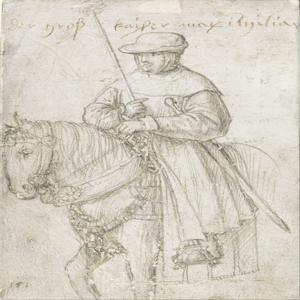 der groß kaiser maximilian
151